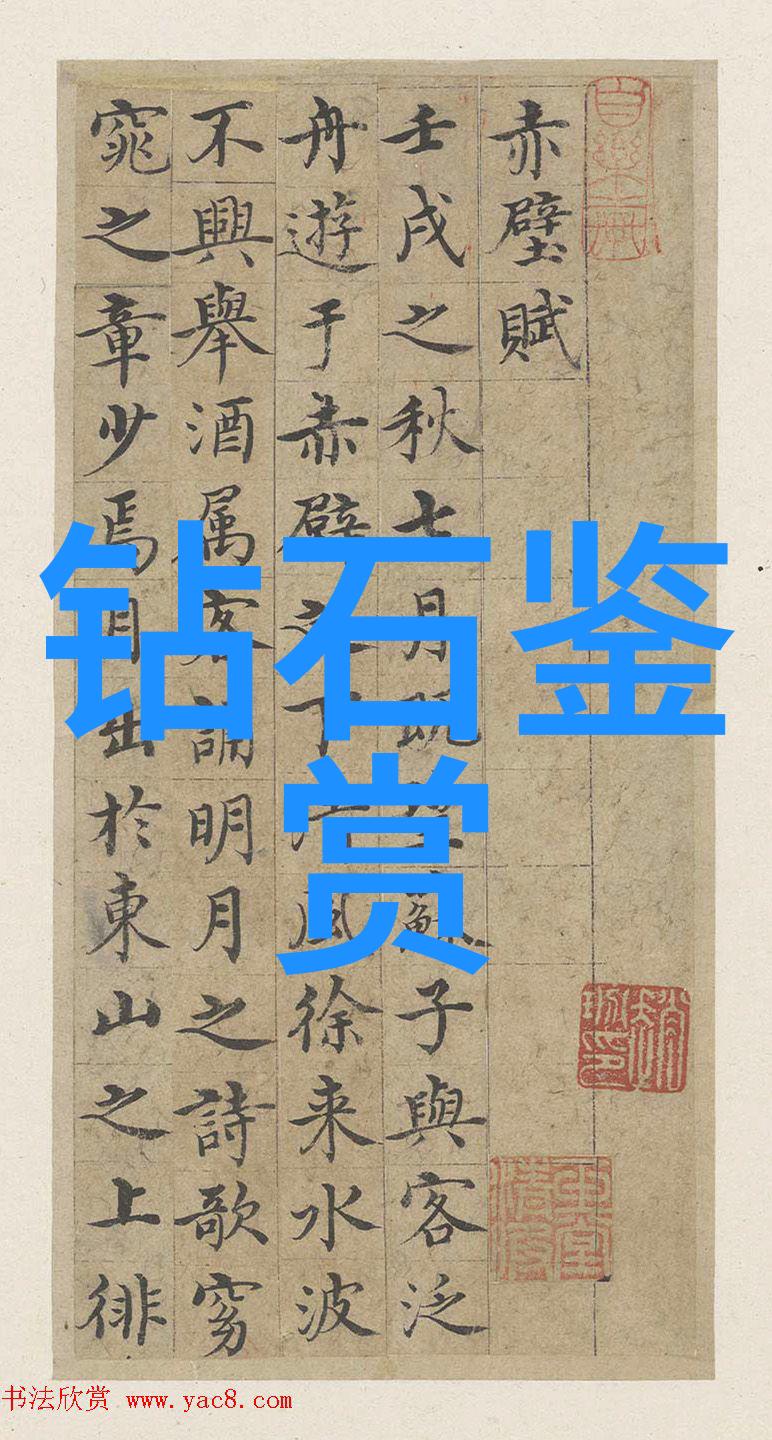 赤壁賦
壬戌之秋七月既望蘇子與客泛
舟遊于赤壁之下清風徐来水波
不興舉酒属客誦明月之詩歌窈
窕之章少焉月出於東山之上徘
钻石鉴
赏
书法欣赏 www.yac8.com